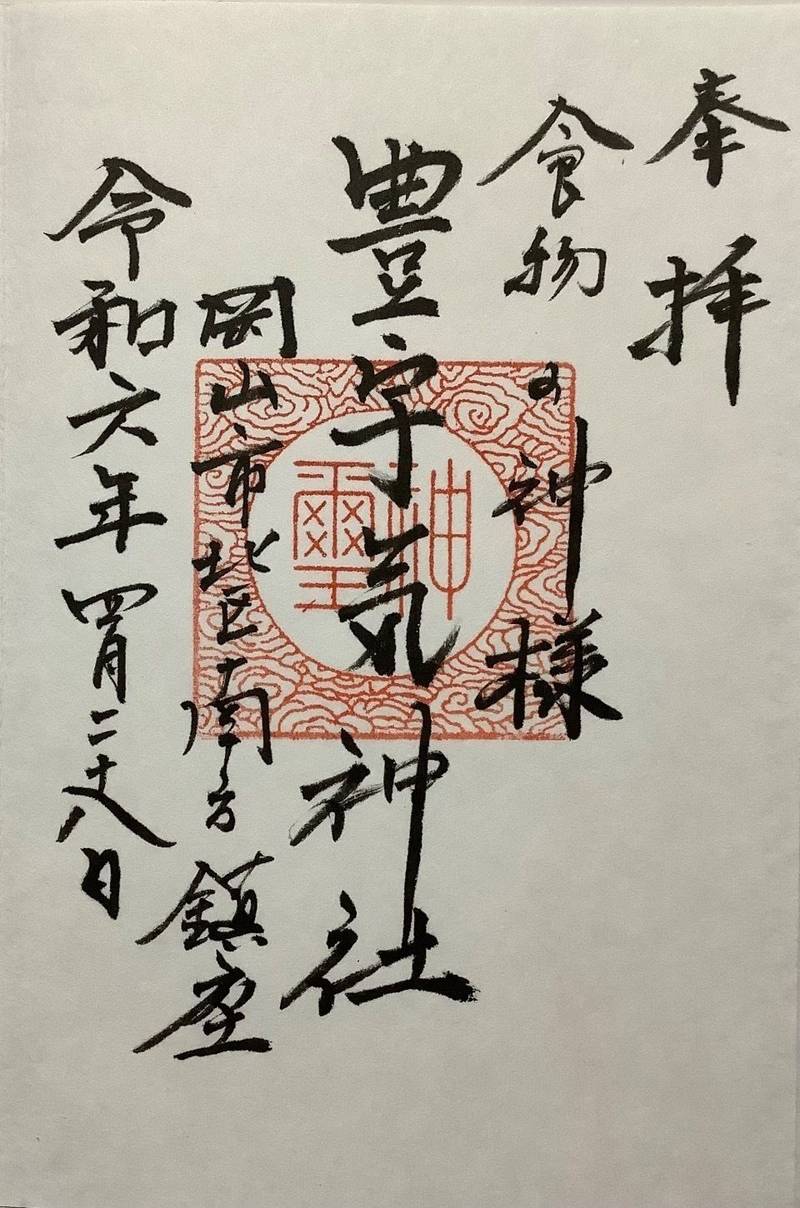 奉拝
食物の神様
豊宇気神社
岡山市北区南方鎮座
令和六年四月二十八日
神璽